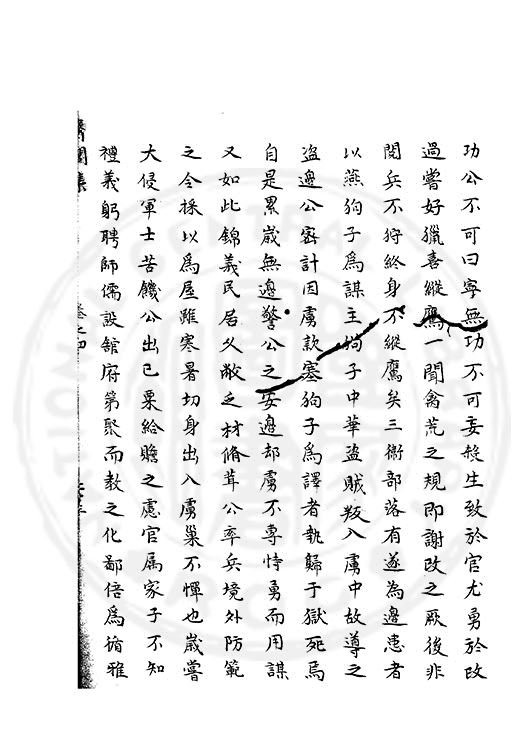 功公不可曰寧無功不可妄殺生致於官尤勇於改
過嘗好獵喜縱鷹一聞禽荒之規即謝改之厥後非
閱兵不狩終身不縱鷹矣三衛部落有遂為邊患者
以燕狗子為謀主狗子中華盜賊叛入虜中故導之
盜邊公密計因虜款塞狗子為譯者執歸于獄死焉
自是累歲無邊警公之安邊却虜不專恃勇而用謀
又如此錦義民居久敝乏材脩葺公率兵境外防範
之令採以為屋雖寒暑切身出入虜巢不憚也歲嘗
大侵軍士苦饑公出己粟給贍之慮官属家子不知
禮義躬聘師儒設舘府第聚而教之化鄙倍為循雅
醫閭集
卷之四